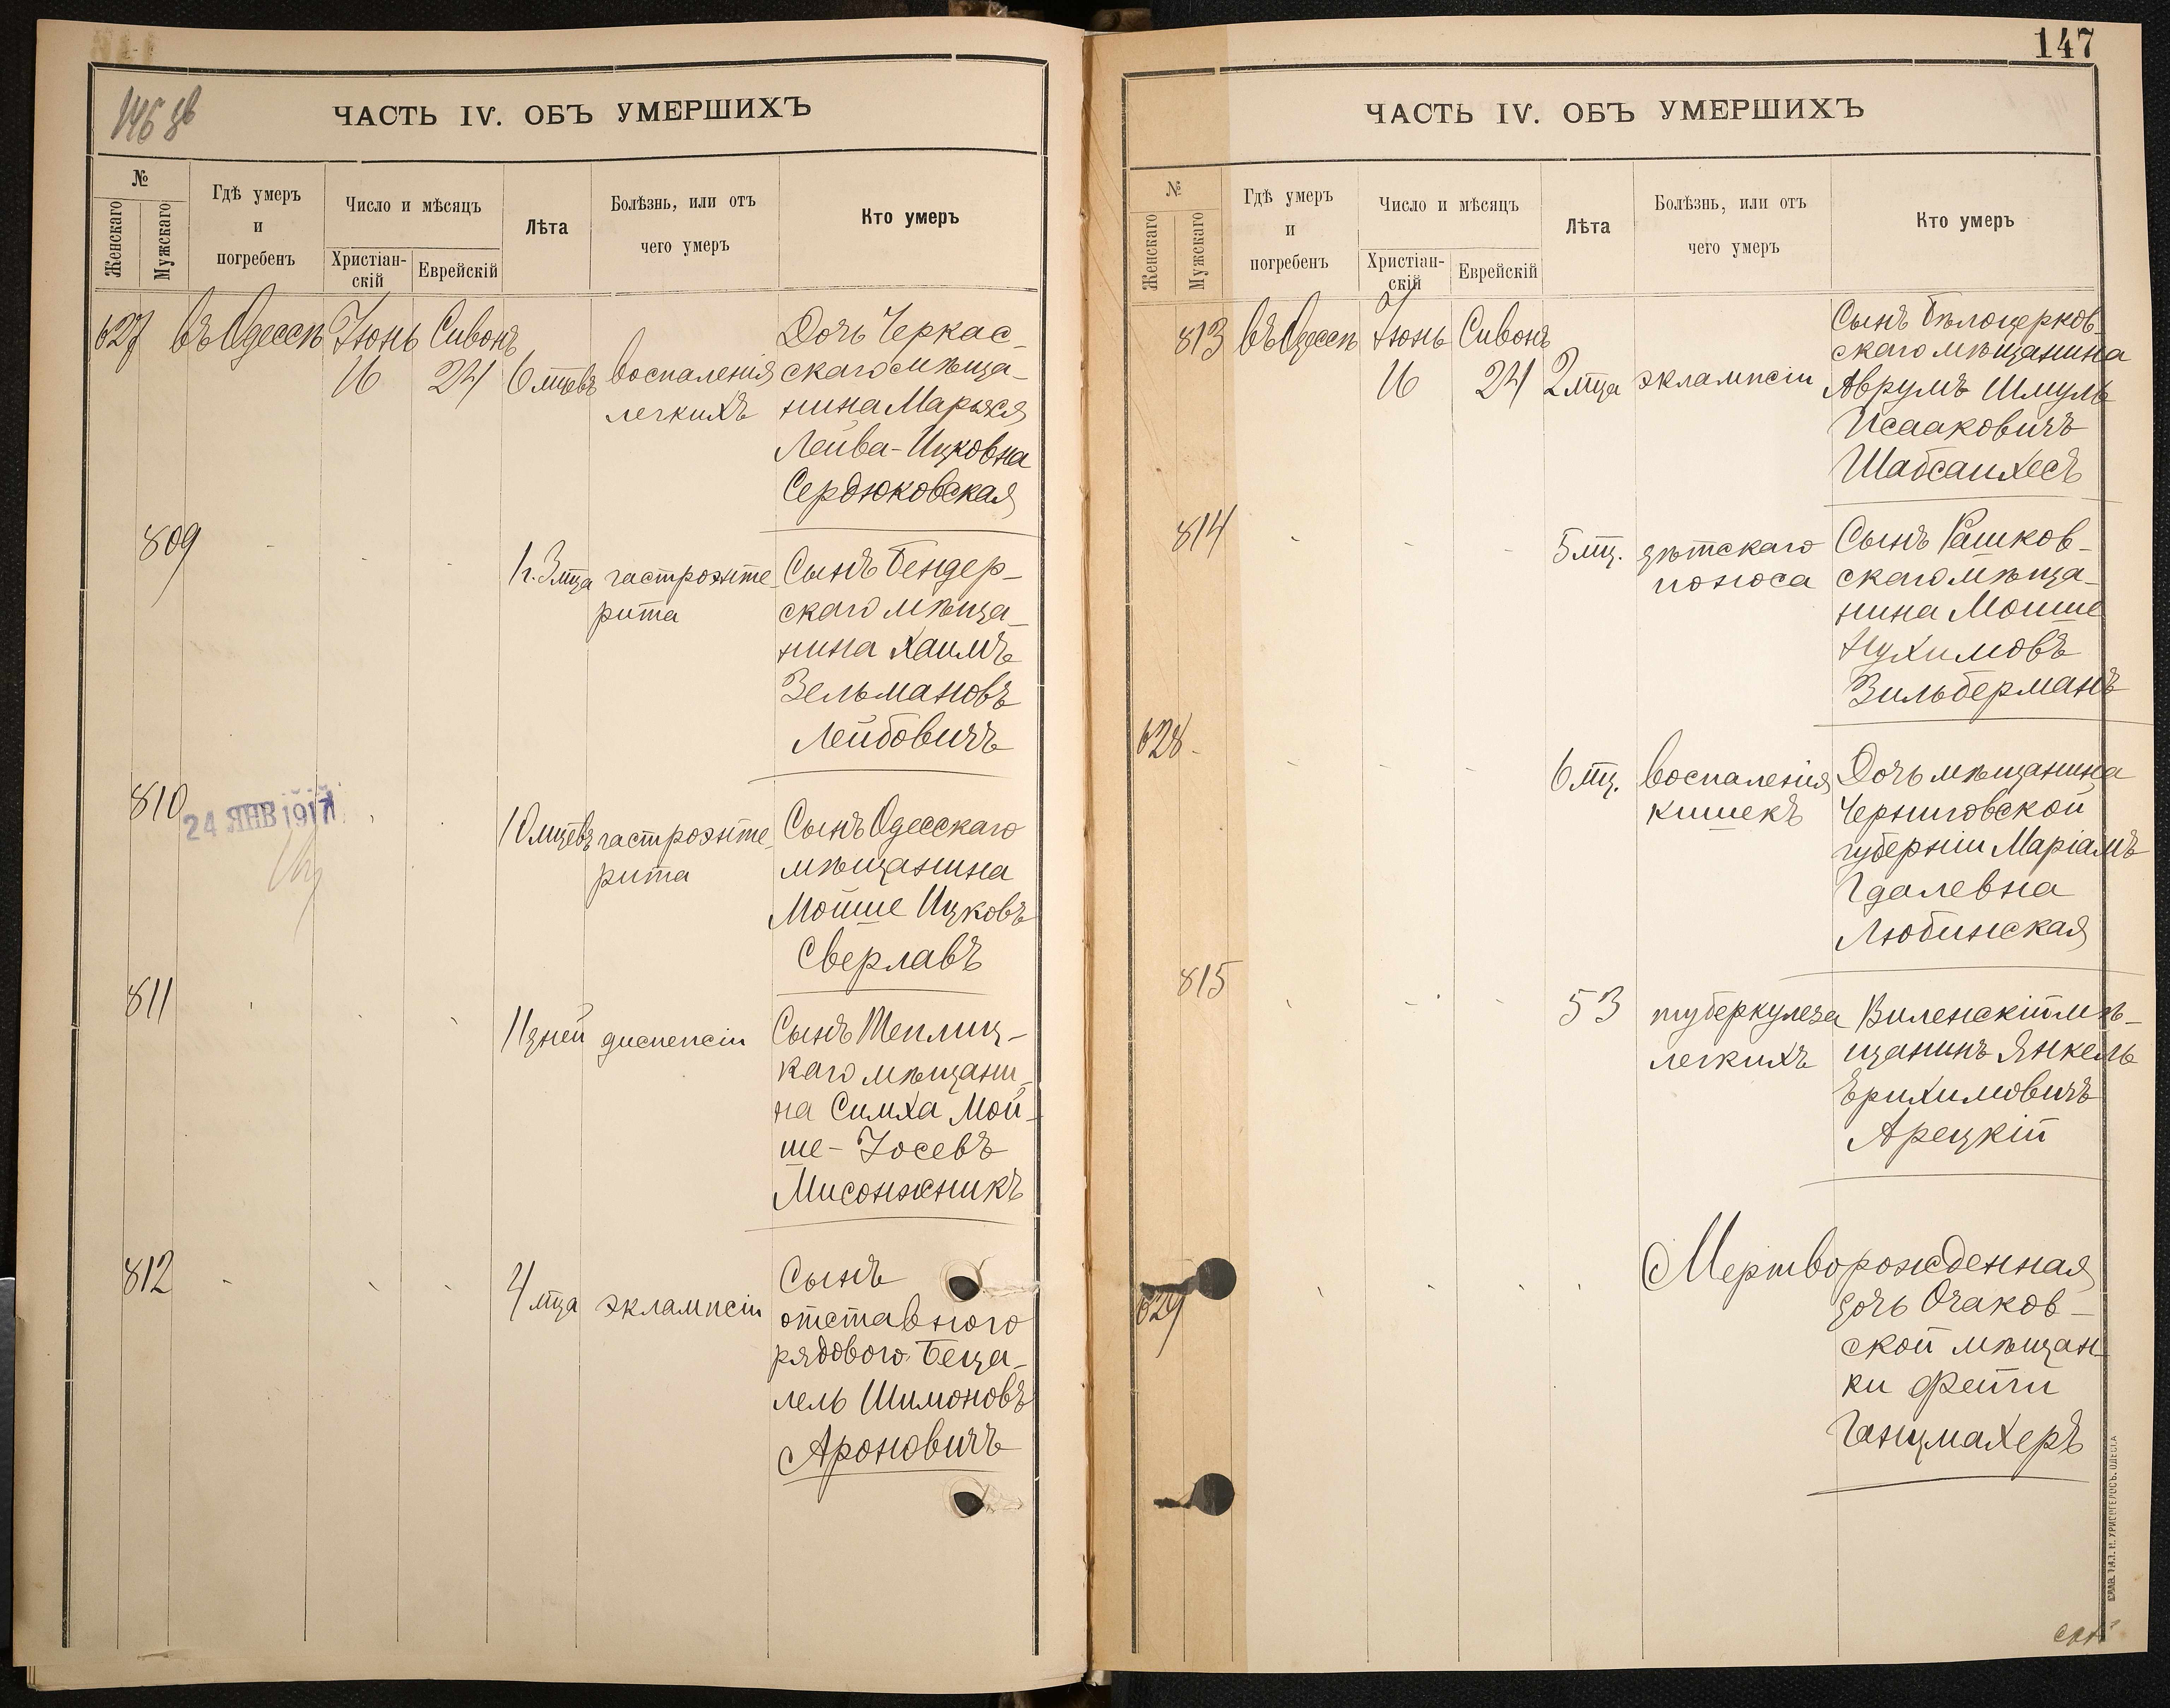 146 об
ЧАСТЬ IV. ОБЪ УМЕРШИХЪ
№
Женскаго
Мужскаго
Гдѣ умеръ
и
погребенъ
Число и мѣсяцъ
Христіан-
скій
Еврейскій
Лѣта
Болѣзнь, или отъ
чего умеръ
Кто умеръ
627 въ Одессѣ Іюнь Сивонъ Дочь Черкас-
16 24 6 мцевъ воспаленія скаго мѣща-
легкихъ нина Марьяся
Лейва-Ицковна
Сердюковская
809
1 г. 3 мца гастроэнте- Сынъ Бендер-
рита скаго мѣща-
нина Хаимъ
Зельмановъ
Лейбовичъ
810
24 ЯНВ 1917
10 мцевъ гастроэнте- Сынъ Одесскаго
рита мѣщанина
Мойше Ицковъ
Сверлавъ
811
11 дней диспепсіи Сынъ Теплиц-
каго мѣщани-
на Симха Мой-
ше-Іосевъ
Мисонжникъ
812
4 мца эклампсіи Сынъ
отставного
рядового Беца-
лель Шимоновъ
Ароновичъ
147
ЧАСТЬ IV. ОБЪ УМЕРШИХЪ
№
Женскаго
Мужскаго
Гдѣ умеръ
и
погребенъ
Число и мѣсяцъ
Христіан-
скій
Еврейскій
Лѣта
Болѣзнь, или отъ
чего умеръ
Кто умеръ
813 въ Одессѣ Іюнь Сивонъ Сынъ Бѣлоцерков-
скаго мѣщанина
16 24 2 мца эклампсіи Аврумъ Шмуль
Исааковичъ
Шабсаихесъ
814
5 мц. дѣтскаго Сынъ Рашков-
поноса скаго мѣща-
нина Моише
Нухимовъ
Зильберманъ
628
6 мц. воспаленія Дочь мѣщанина
кишекъ Черниговской
губерніи Маріамъ
Гдалевна
Любинская
815
53 туберкулеза Виленскій мѣ-
легкихъ щанинъ Янкель
Ерихимовичъ
Арецкій
629
Мертворожденная
дочь Очаков-
ской мѣщан-
ки Фейги
Ганцмахеръ